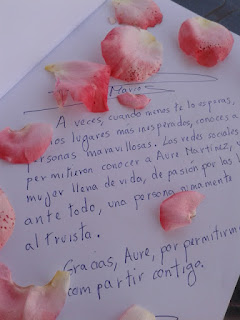 Marios
A veces, cuando menos te lo esperas,
los lugares mas inesperados, conoces a
personas maravillosas. Las redes sociales
permitieron conocer a Aure Martínez,
mujer llena de vida, de pasión por las
ante todo, una persona
altruista.
Gracias, Aure, por permitirme
compartir contigo.